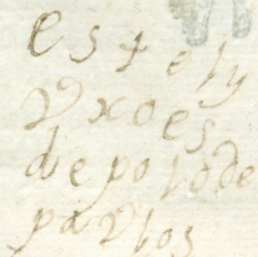 este ly
vxo es
de po lo de
pavlos